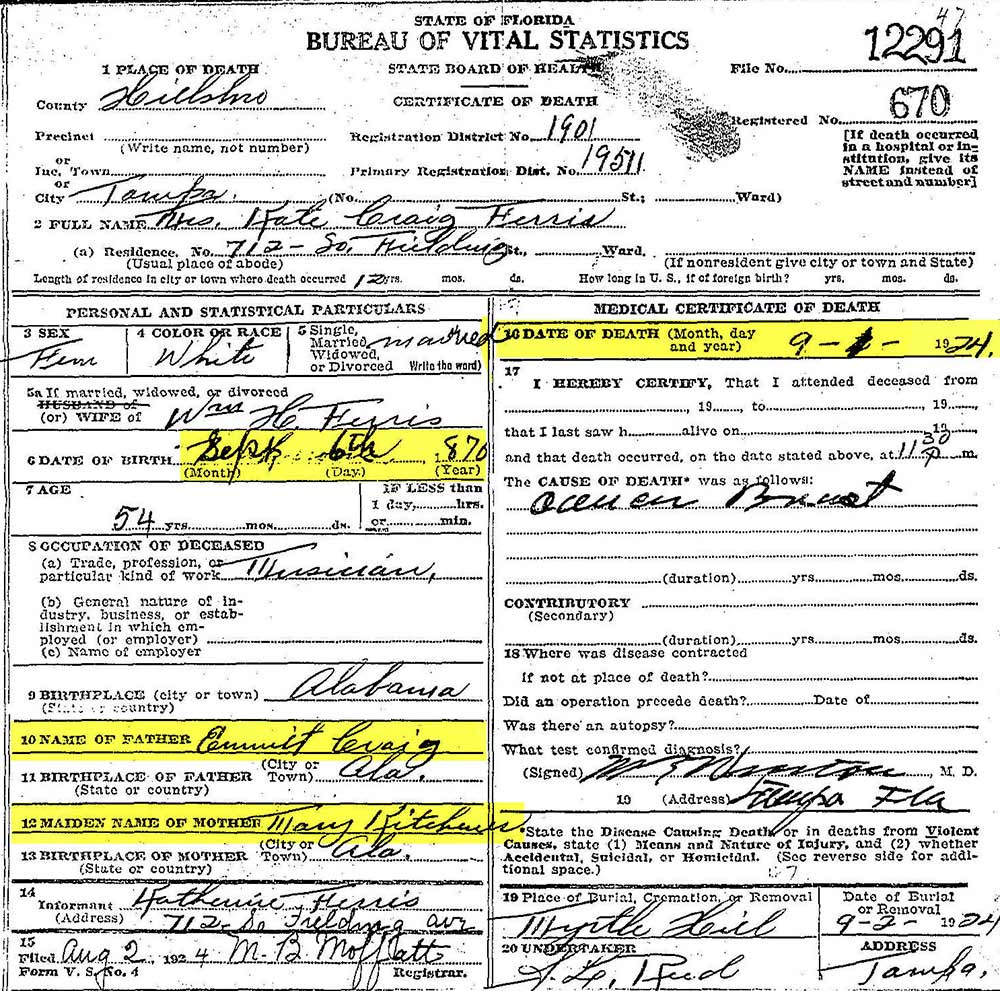 47
STATE OF FLORIDA
BUREAU OF VITAL STATISTICS
STATE BOARD OF HEALTH
CERTIFICATE OF DEATH
File No. 12291
Registered No. 670
[If death occurred in a hospital or institution, give its NAME instead of street and number]
1 PLACE OF DEATH
County Hillsbro
Precinct
(Write name, not number)
or
Inc. Town
or
City Tampa. (No. St.; Ward)
Registration District No. 1901
Primary Registration Dist. No. 19511
2 FULL NAME Mrs. Kate Craig Ferris
(a) Residence. No. 712 - So. Fielding St., Ward.
(Usual place of abode) (If nonresident give city or town and State)
Length of residence in city or town where death occurred 12 yrs. mos. ds. How long in U. S., if of foreign birth? yrs. mos. ds.
PERSONAL AND STATISTICAL PARTICULARS
3 SEX Fem
4 COLOR OR RACE White
5 Single, Married, Widowed, or Divorced married
Write the word)
5a If married, widowed, or divorced
HUSBAND of
(or) WIFE of Wm H. Ferris
6 DATE OF BIRTH Sept 6th 1870
(Month) (Day) (Year)
7 AGE
54 yrs. mos. ds.
IF LESS than
1 day, hrs.
or min.
8 OCCUPATION OF DECEASED
(a) Trade, profession, or
particular kind of work Musician,
(b) General nature of in-
dustry, business, or estab-
lishment in which em-
ployed (or employer)
(c) Name of employer
9 BIRTHPLACE (city or town) Alabama
(State or country)
10 NAME OF FATHER Emmit Craig
11 BIRTHPLACE OF FATHER (City or Town) Ala.
(State or country)
12 MAIDEN NAME OF MOTHER Mary
13 BIRTHPLACE OF MOTHER (City or Town) Ala.
(State or country)
14
Informant Katherine Ferris
(Address) 712 So Fielding ave
15
Filed Aug 2, 1924 M. B. Moffatt
Form V. S. No. 4 Registrar.
MEDICAL CERTIFICATE OF DEATH
16 DATE OF DEATH (Month, day
and year) 9 - 1 - 1924.
17
I HEREBY CERTIFY, That I attended deceased from
, 19 , to , 19 ,
that I last saw h alive on , 19
and that death occurred, on the date stated above, at 11 30 P m.
The CAUSE OF DEATH* was as follows:
Cancer Breast
(duration) yrs. mos. ds.
CONTRIBUTORY
(Secondary)
(duration) yrs. mos. ds.
18 Where was disease contracted
if not at place of death?
Did an operation precede death? Date of
Was there an autopsy?
What test confirmed diagnosis?
(Signed) , M. D.
19 (Address) Tampa Fla
*State the Disease Causing Death, or in deaths from Violent
Causes, state (1) Means and Nature of Injury, and (2) whether
Accidental, Suicidal, or Homicidal. (See reverse side for addi-
tional space.)
19 Place of Burial, Cremation, or Removal
Myrtle Hill
Date of Burial
or Removal
9-2-1924
20 UNDERTAKER
Reed
ADDRESS
Tampa.